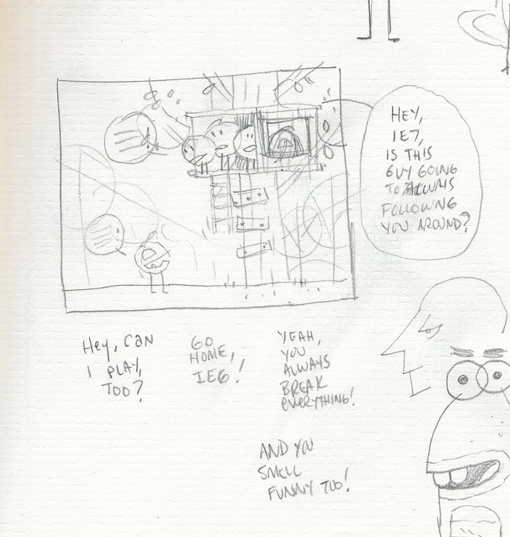 HEY,
IE7,
IS THIS
GUY GOING
TO ALWAYS
FOLLOWING
YOU AROUND?
Hey, CAN
I PLAY,
TOO?
GO
HOME,
IE6!
YEAH,
YOU
ALWAYS
BREAK
EVERYTHING!
AND YOU
SMELL
FUNNY TOO!